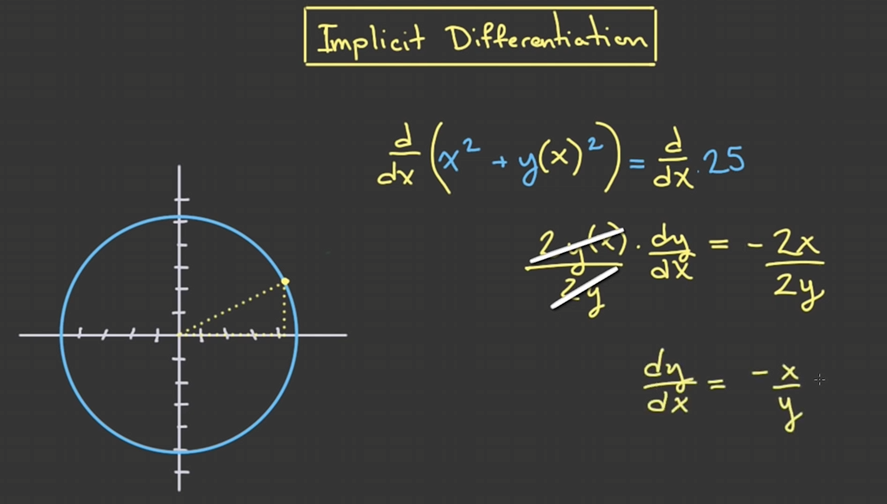 Implicit Differentiation
d/dx (x² + y(x)²) = d/dx · 25
2y(x)/2y · dy/dx = - 2x/2y
dy/dx = - x/y